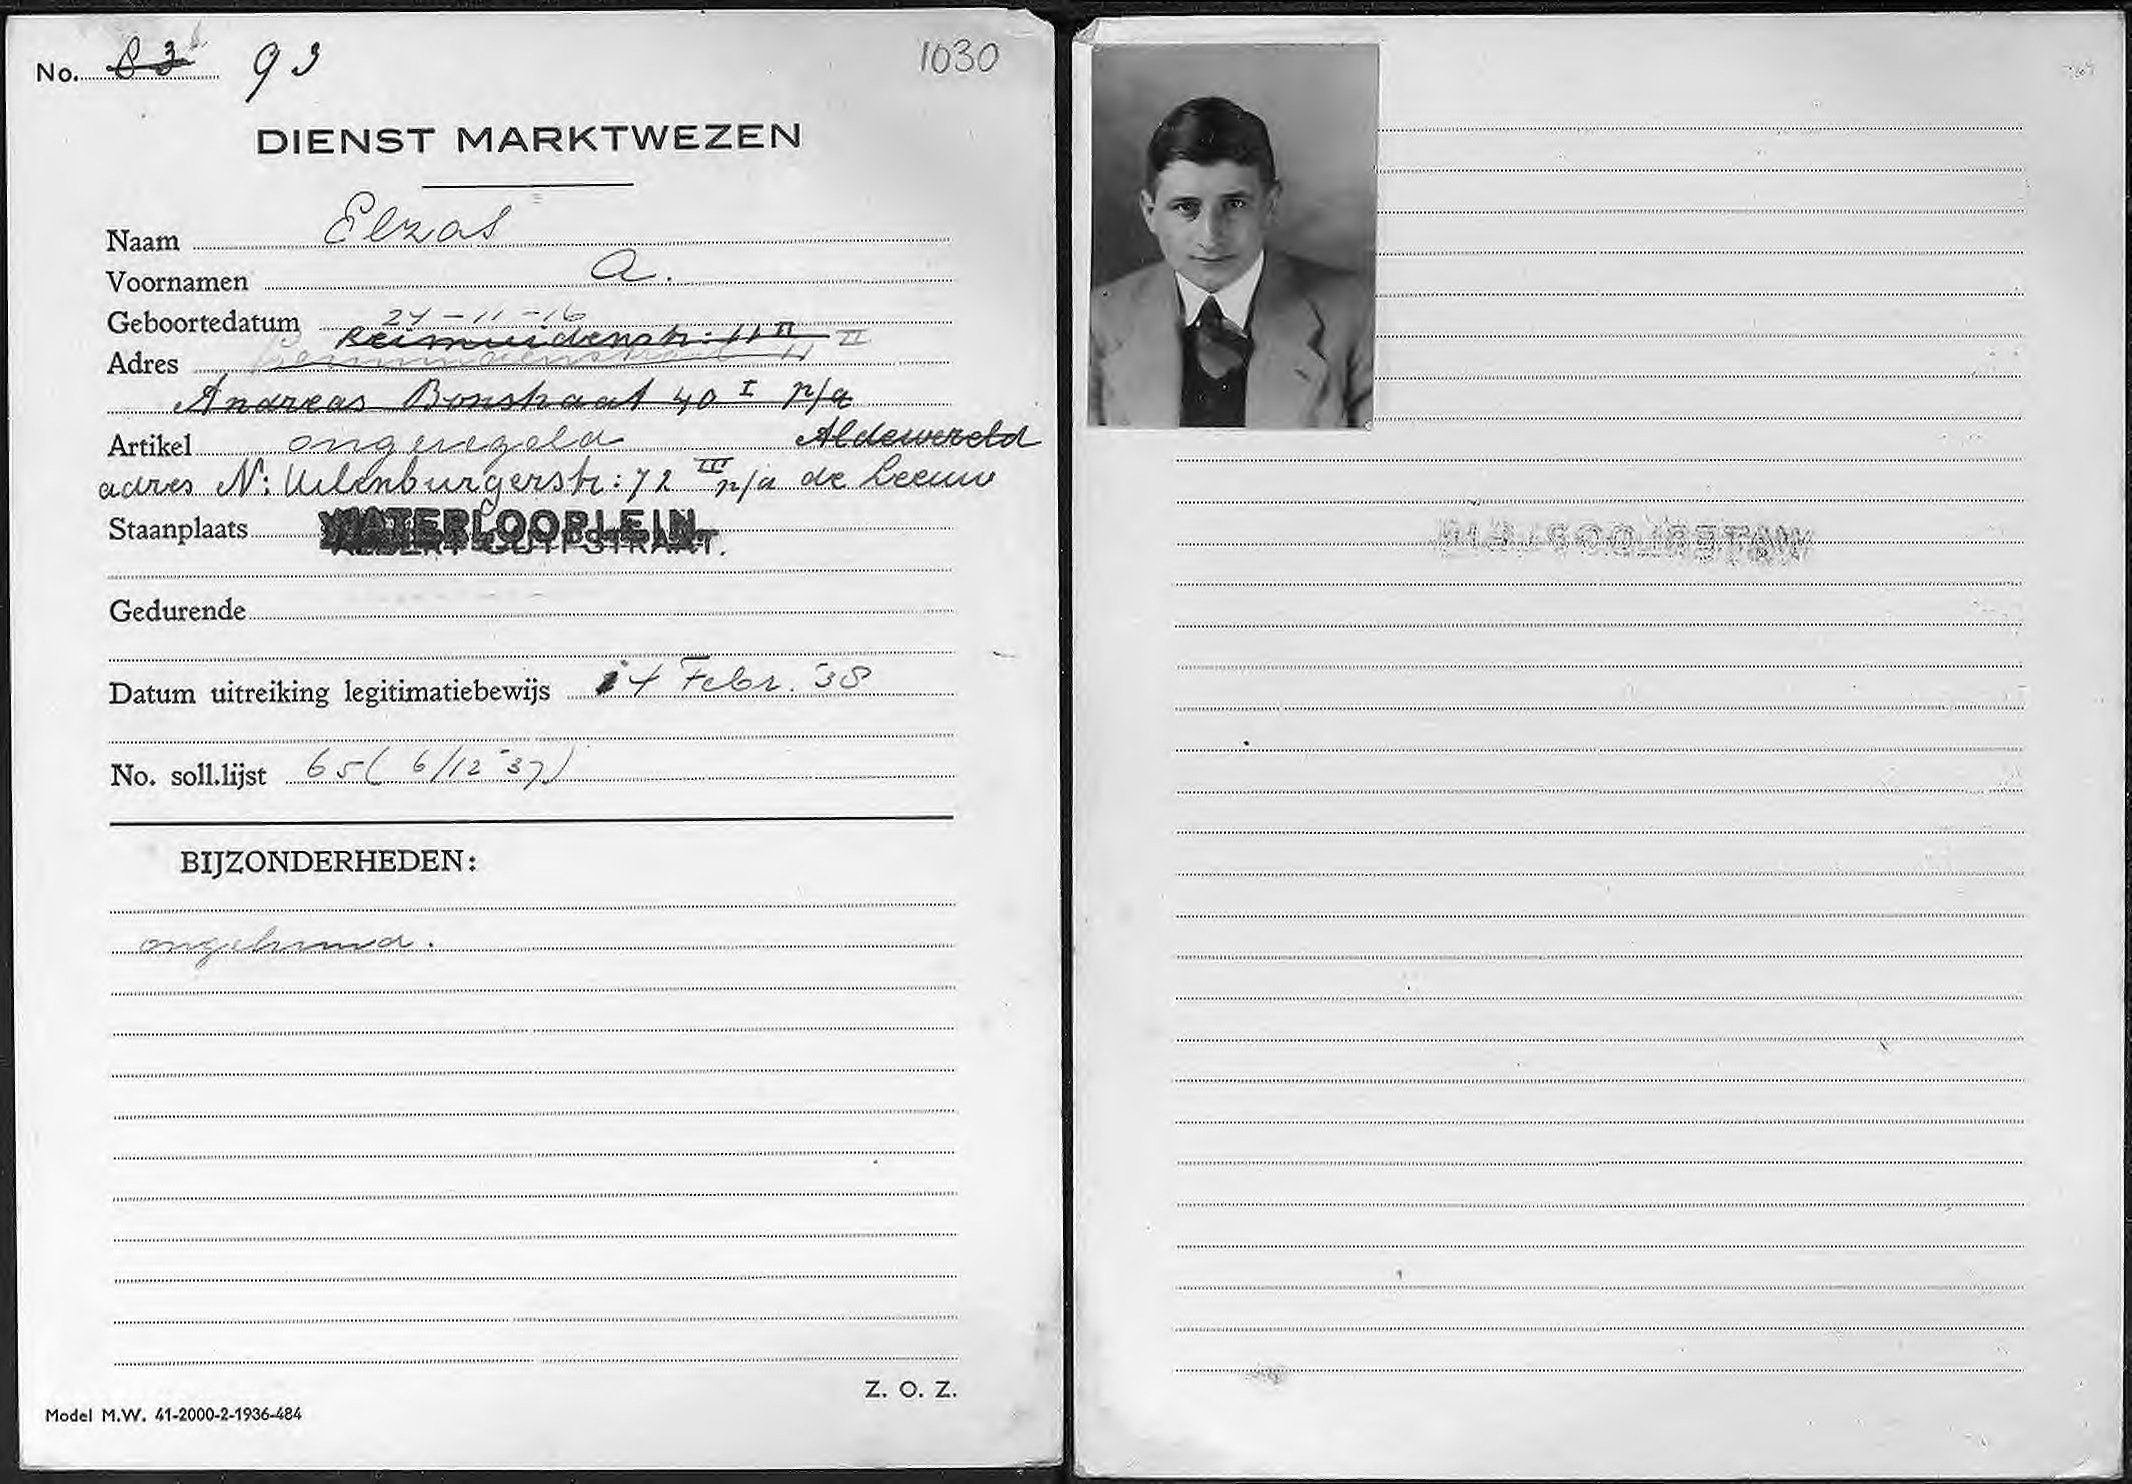 No. 83 93 1030
DIENST MARKTWEZEN
Naam Elzas
Voornamen A.
Geboortedatum 24-11-16
Reimuidenstr: 11 II II
Adres
Andreas Bonstraat 40 I p/a
Artikel ongeregeld Aldewereld
adres N: Uilenburgerstr: 72 III p/a de Leeuw
Staanplaats WATERLOOPLEIN
ALBERT CUYPSTRAAT.
Gedurende
Datum uitreiking legitimatiebewijs 14 Febr. '38
No. soll.lijst 65 ( 6/12 '37)
BIJZONDERHEDEN:
ongehuwd.
Z. O. Z.
Model M.W. 41-2000-2-1936-484
WATERLOOPLEIN